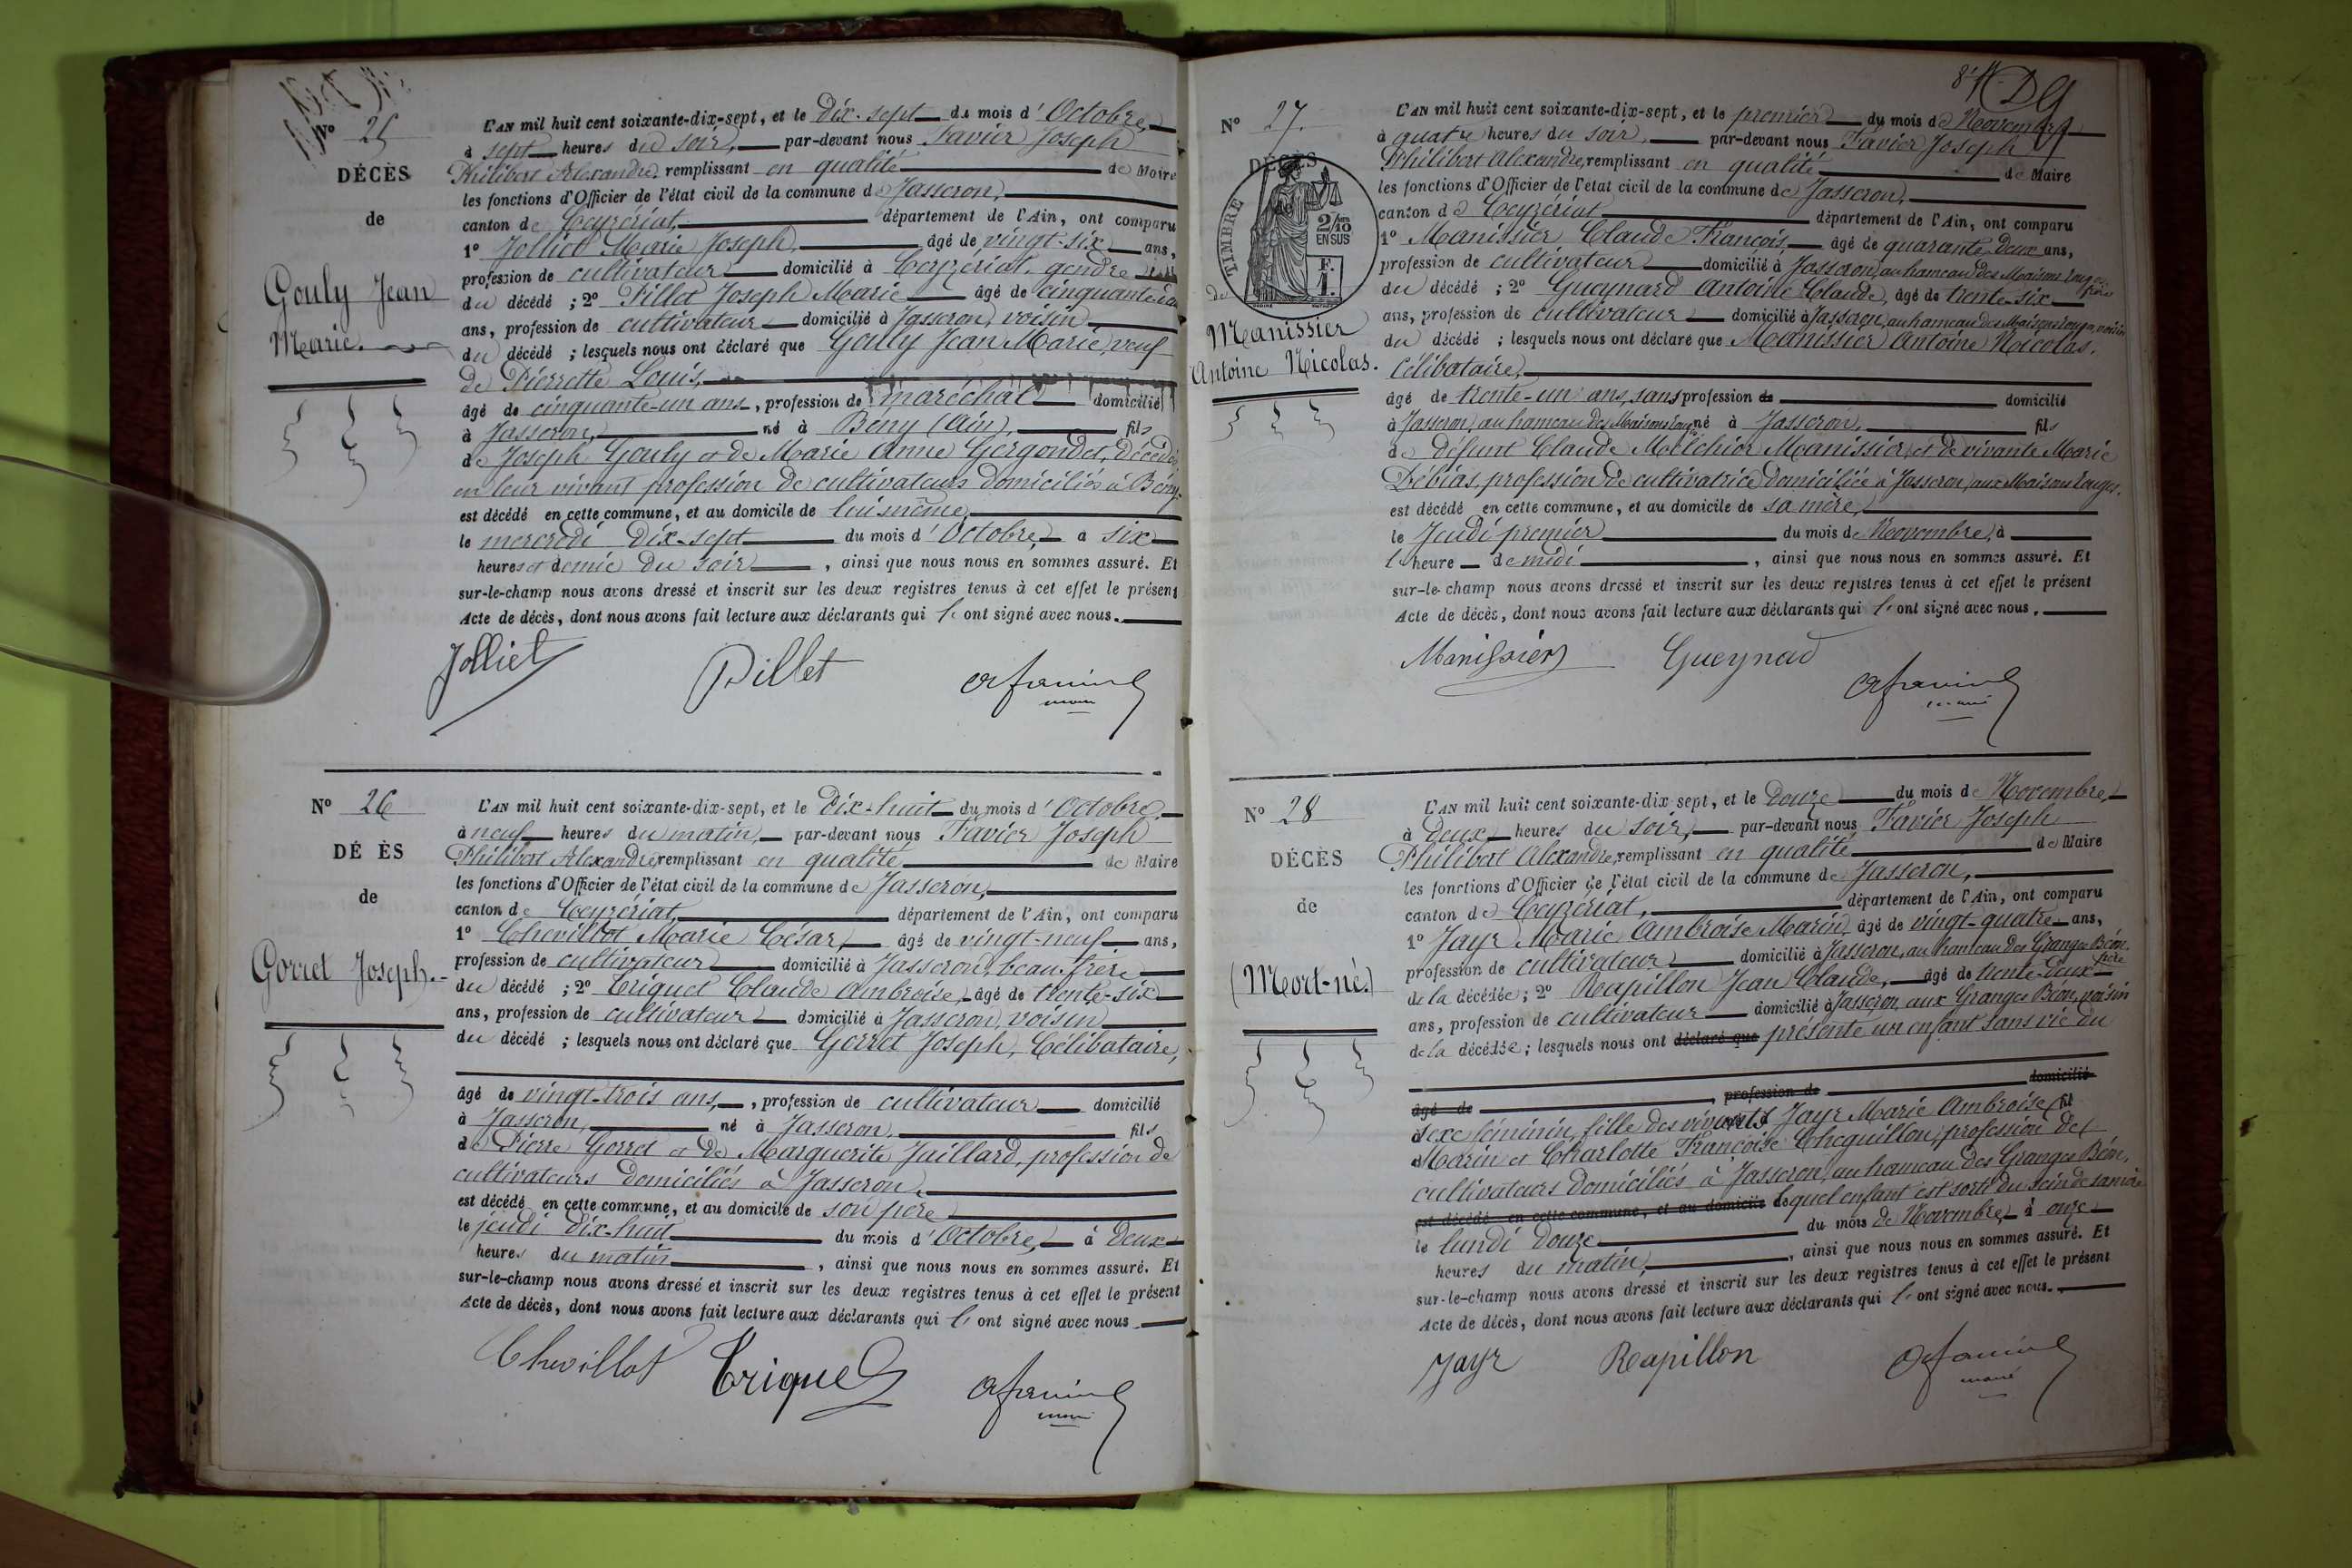 Nº 25
DÉCÈS
de
Gouly Jean
Marie.
L'AN mil huit cent soixante-dix-sept, et le Dix-sept du mois d'Octobre,
à sept heures du soir, par-devant nous Favier Joseph
Philibert Alexandre remplissant en qualité de Maire
les fonctions d'Officier de l'état civil de la commune de Jasseron,
canton de Ceyzériat, département de l'Ain, ont comparu
1º Jolliet Marie Joseph, âgé de vingt-six ans,
profession de cultivateur domicilié à Ceyzériat, gendre
du décédé ; 2º Pillet Joseph Marie âgé de cinquante
ans, profession de cultivateur domicilié à Jasseron, voisin
du décédé ; lesquels nous ont déclaré que Gouly Jean Marie, veuf
de Pierrette Louis,
âgé de cinquante-un ans, profession de maréchal domicilié
à Jasseron, né à Beny (Ain), fils
de Joseph Gouly et de Marie Anne Gergondet, Décédés
en leur vivant profession de cultivateurs domiciliés à Bény.
est décédé en cette commune, et au domicile de lui même,
le mercredi dix-sept du mois d'Octobre, à six
heures et demie du soir, ainsi que nous nous en sommes assuré. Et
sur-le-champ nous avons dressé et inscrit sur les deux registres tenus à cet effet le présent
Acte de décès, dont nous avons fait lecture aux déclarants qui l'ont signé avec nous.
Jolliet Pillet
Nº 26
DÉ ÈS
de
Gorret Joseph.
L'AN mil huit cent soixante-dix-sept, et le Dix-huit du mois d'Octobre,
à neuf heures du matin, par-devant nous Favier Joseph
Philibert Alexandre remplissant en qualité de Maire
les fonctions d'Officier de l'état civil de la commune de Jasseron,
canton de Ceyzériat, département de l'Ain, ont comparu
1º Chevillot Marie César, âgé de vingt-neuf ans,
profession de cultivateur domicilié à Jasseron, beau-frère
du décédé ; 2º Triquet Claude Ambroise, âgé de trente-six
ans, profession de cultivateur domicilié à Jasseron, voisin
du décédé ; lesquels nous ont déclaré que Gorret Joseph, Célibataire,
âgé de vingt-trois ans, profession de cultivateur domicilié
à Jasseron, né à Jasseron, fils
de Pierre Gorret et de Marguerite Juillard, profession de
cultivateurs domiciliés à Jasseron.
est décédé en cette commune, et au domicile de son père
le jeudi dix-huit du mois d'Octobre, à deux
heures du matin, ainsi que nous nous en sommes assuré. Et
sur-le-champ nous avons dressé et inscrit sur les deux registres tenus à cet effet le présent
Acte de décès, dont nous avons fait lecture aux déclarants qui l'ont signé avec nous.
Chevillot Triquet
Nº 27.
DÉCÈS
TIMBRE
2/10
EN SUS
de
Manissier
Antoine Nicolas.
L'AN mil huit cent soixante-dix-sept, et le premier du mois de Novembre
à quatre heures du soir, par-devant nous Favier Joseph
Philibert Alexandre, remplissant en qualité de Maire
les fonctions d'Officier de l'état civil de la commune de Jasseron,
canton de Ceyzériat département de l'Ain, ont comparu
1º Manissier Claude François, âgé de quarante-deux ans,
profession de cultivateur domicilié à Jasseron, au hameau des Maisons Rouges, frère
du décédé ; 2º Gueynard Antoine Claude, âgé de trente-six
ans, profession de cultivateur domicilié à Jasseron, au hameau des Maisons rouges, voisin
du décédé ; lesquels nous ont déclaré que Manissier Antoine Nicolas.
Célibataire,
âgé de trente-un ans, sans profession de domicilié
à Jasseron, au hameau des Maisons rouges né à Jasseron, fils
de défunt Claude Melchior Manissier et de vivante Marie
Débias, profession de cultivatrice domiciliée à Jasseron, aux Maisons Rouges.
est décédé en cette commune, et au domicile de sa mère,
le Jeudi premier du mois de Novembre, à
l'heure de midi, ainsi que nous nous en sommes assuré. Et
sur-le-champ nous avons dressé et inscrit sur les deux registres tenus à cet effet le présent
Acte de décès, dont nous avons fait lecture aux déclarants qui l'ont signé avec nous.
Manissier Gueynad
Nº 28
DÉCÈS
de
(Mort-né.)
L'AN mil huit cent soixante-dix sept, et le Douze du mois de Novembre,
à Deux heures du soir, par-devant nous Favier Joseph
Philibert Alexandre, remplissant en qualité de Maire
les fonctions d'Officier de l'état civil de la commune de Jasseron,
canton de Ceyzériat, département de l'Ain, ont comparu
1º Jayr Marie Ambroise Marin, âgé de vingt-quatre ans,
profession de cultivateur domicilié à Jasseron, au hameau des Granges Béon, père
de la décédée ; 2º Rapillon Jean Claude, âgé de trente-deux
ans, profession de cultivateur domicilié à Jasseron, aux Granges Béon, voisin
de la décédée ; lesquels nous ont déclaré que présenté un enfant sans vie du
âgé de , profession de domicilié
sexe féminin, fille des vivants Jayr Marie Ambroise
Marin et Charlotte Françoise Cheguillon, profession de
cultivateurs domiciliés à Jasseron, au hameau des Granges Béon,
est décédé en cette commune, et au domicile de lequel enfant est sorti du sein de sa mère
le lundi douze du mois de Novembre, à onze
heures du matin, ainsi que nous nous en sommes assuré. Et
sur-le-champ nous avons dressé et inscrit sur les deux registres tenus à cet effet le présent
Acte de décès, dont nous avons fait lecture aux déclarants qui l'ont signé avec nous.
Jayr Rapillon